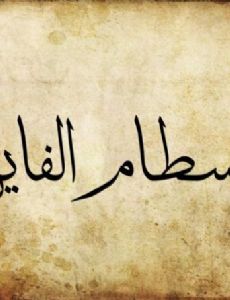 سطام الفاي